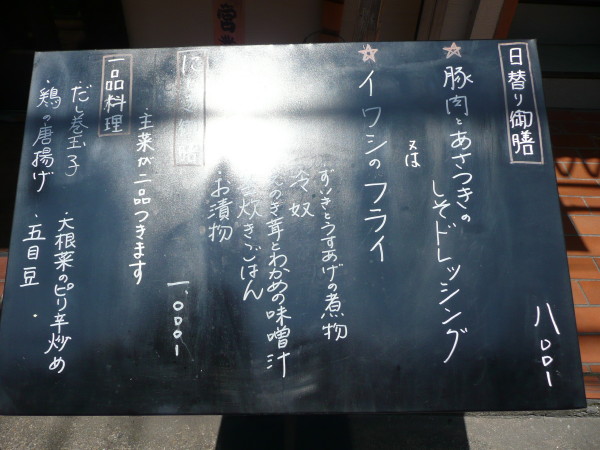 日替り御膳
八〇〇円
☆豚肉とあさつきの
しそドレッシング
又は
☆イワシのフライ
ずいきとうすあげの煮物
冷奴
のき茸とわかめの味噌汁
炊きごはん
お漬物
に
御膳
・主菜が二品つきます
一、〇〇〇円
一品料理
・だし巻玉子
・鶏の唐揚げ
・大根菜のピリ辛炒め
・五目豆